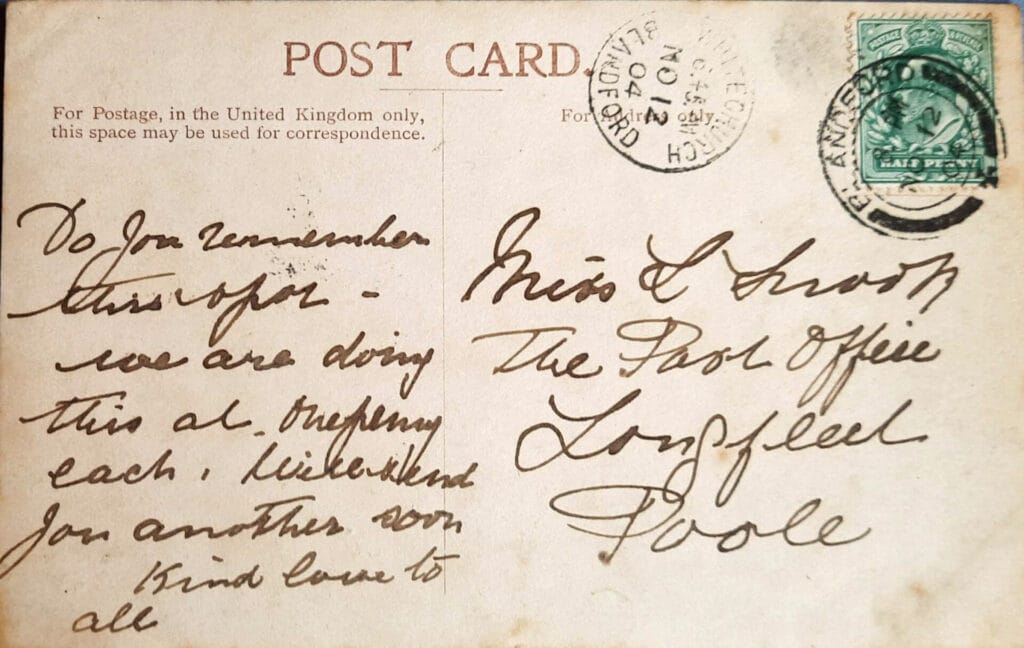 POST CARD.
For Postage, in the United Kingdom only,
this space may be used for correspondence.
For Address only.
WHITECHURCH
6.45 PM
NO 12
04
BLANDFORD
POSTAGE & REVENUE
HALFPENNY
BLANDFORD
12
04
Do you remember
this spot -
we are doing
this at . Onepenny
each . Will send
you another soon
Kind love to
all
Miss L Snook
The Post Office
Longfleet
Poole